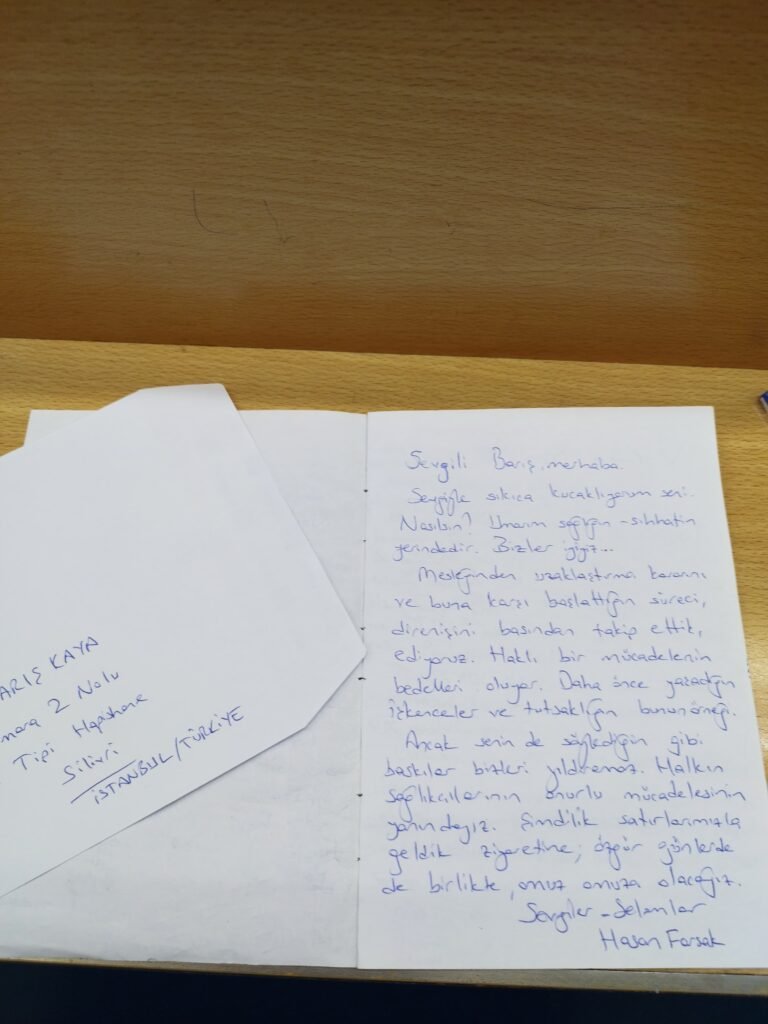 ARIŞ KAYA
mara 2 Nolu
Tipi Hapishane
Silivri
İSTANBUL/TÜRKİYE
Sevgili Barış, merhaba.
Sevgiyle sıkıca kucaklıyorum seni.
Nasılsın? Umarım sağlığın-sıhhatin
yerindedir. Bizler iyiyiz...
Mesleğinden uzaklaştırma kararını
ve buna karşı başlattığın süreci,
direnişini basından takip ettik,
ediyoruz. Haklı bir mücadelenin
bedelleri oluyor. Daha önce yaşadığın
işkenceler ve tutsaklığın bunun örneği.
Ancak senin de söylediğin gibi
baskılar bizleri yıldıramaz. Halkın
sağlıkçılarının onurlu mücadelesinin
yanındayız. Şimdilik satırlarımızla
geldik ziyaretine; özgür günlerde
de birlikte, omuz omuza olacağız.
Sevgiler-Selamlar
Hasan Farsak